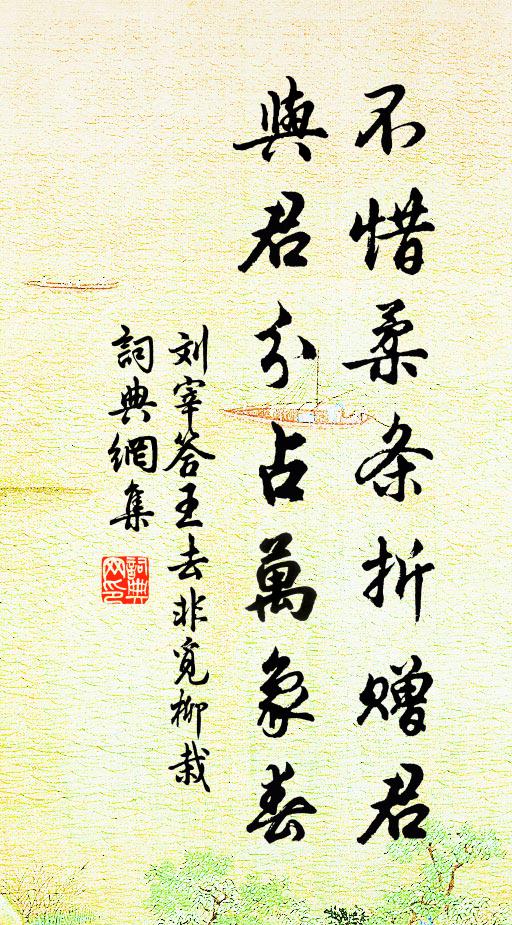 不惜柔条折赠君
與君分占萬象春
刘宰答王去非覓柳栽
詞典網集
詞典网印